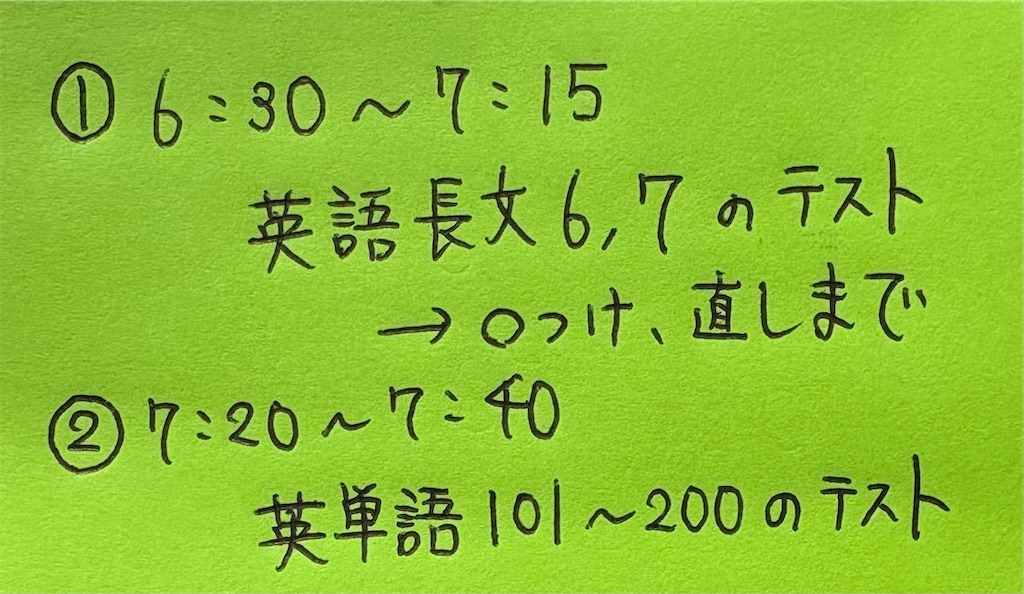 ① 6:30～7:15
英語長文6,7のテスト
→○つけ、直しまで
② 7:20～7:40
英単語101～200のテスト